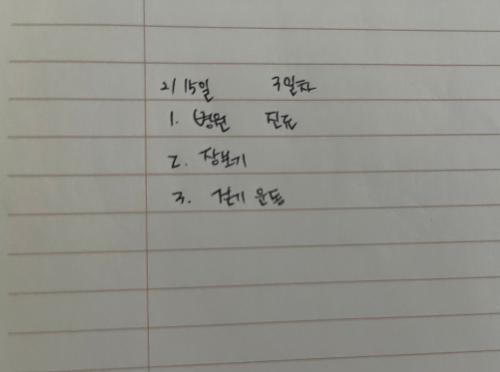 2/15일 3일차
1. 병원 진료
2. 장보기
3. 걷기 운동